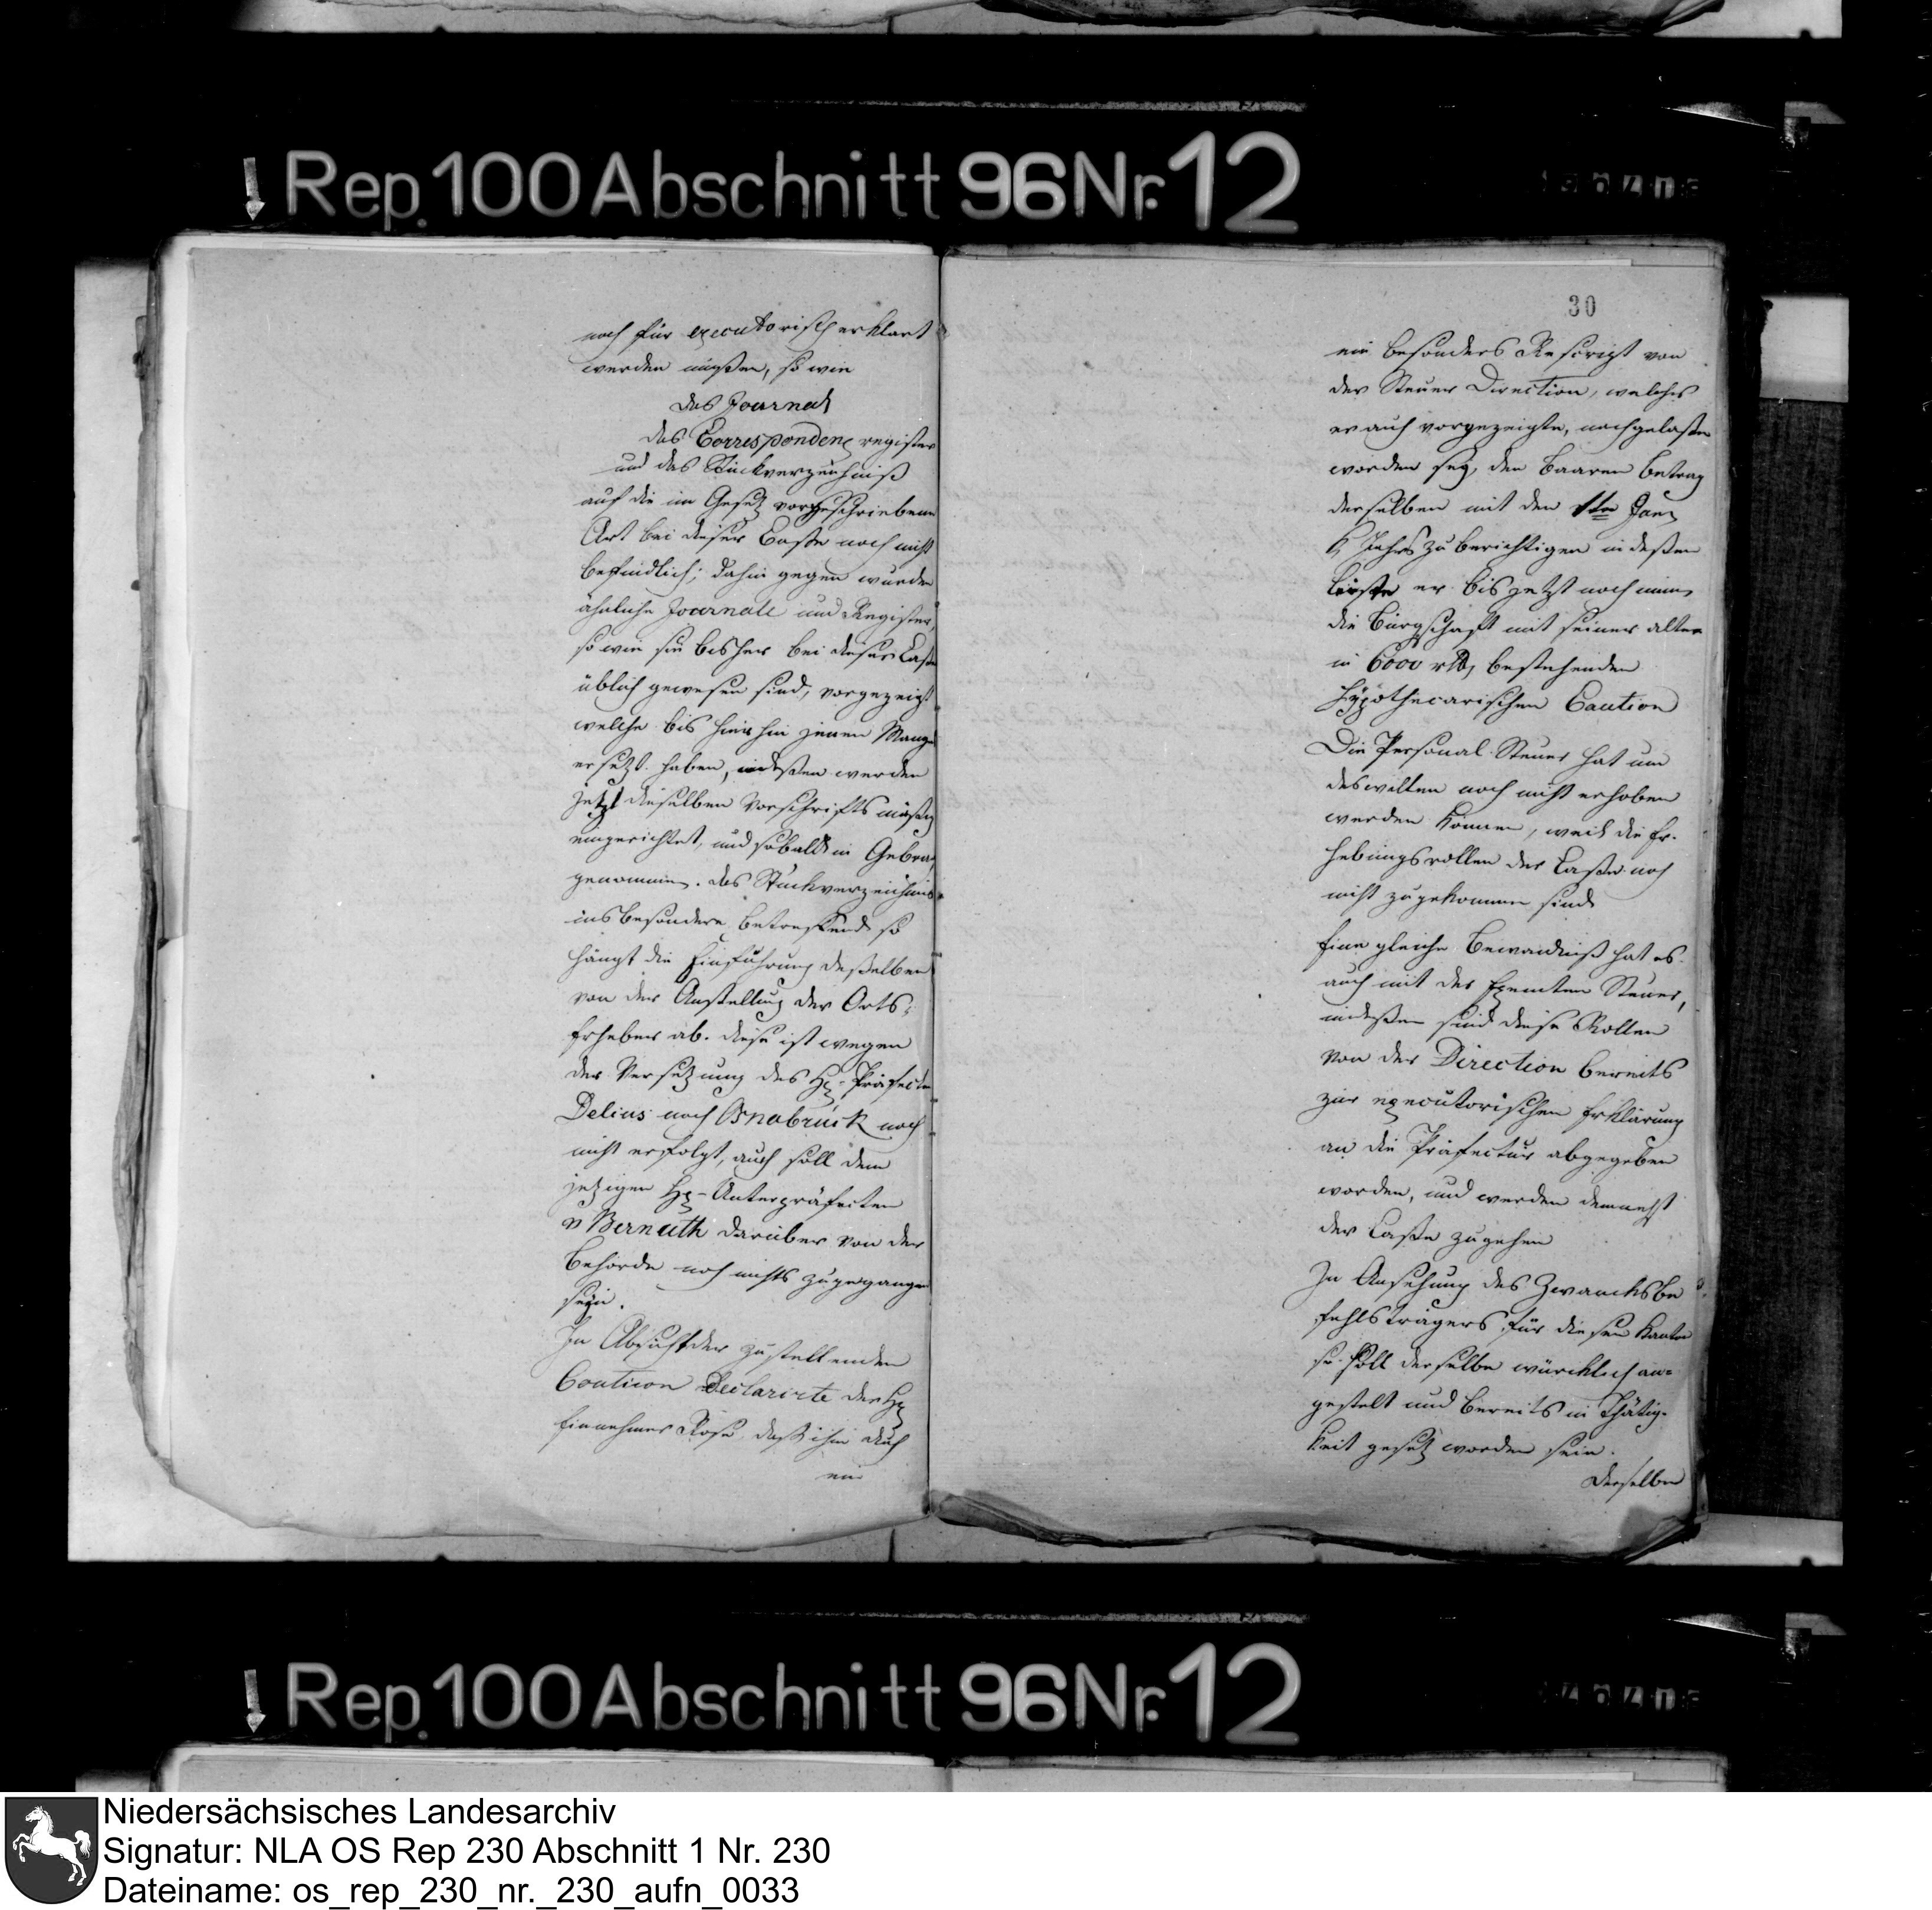 Rep. 100 Abschnitt 96 Nr. 12
noch für executorisch erklärt
werden müßen, so wie
das Journal
das Correspondenz register
und das Stückverzeichniß
auf die im Gesetz vorgeschriebene
Art bei dieser Casse noch nicht
befindlich; dahin gegen wurden
ähnliche Journale und Register,
so wie sie bisher bei dieser Casse
üblich gewesen sind, vorgezeigt
welche bis hierhin jenen Mangel
ersetzt haben, indeßen werden
jetzt dieselben Vorschriftsmäßig
eingerichtet, und sobald in Gebrauch
genommen. Das Stückverzeichniß
insbesondere betreffend so
hängt die Einführung deßelben
von der Anstellung der Orts-
Erheber ab. diese ist wegen
der Versetzung des H. Präfecten
Delius nach Osnabrück noch
nicht erfolgt, auch soll dem
jetzigen H. Unterpräfecten
v Bernuth darüber von der
Behörde noch nichts zugegangen
seyn.
In Absicht der zu stellenden
Caution declarirte der H.
Einnehmer Rose, daß ihm durch
ein
30
ein besonders Rescript von
der Steuer Direction, welches
er auch vorgezeigte, nachgelaßen
worden sey, den baaren Betrag
derselben mit den 1ten Jan.
k. Jahrs zu berichtigen indeßen
leiste er bis jetzt noch immer
die Bürgschaft mit seiner alten
in 6000 rth. bestehenden
hypothecarischen Caution
Die Personal-Steuer hat um
deswillen noch nicht erhoben
werden können, weil die Er-
hebungsrollen der Casse noch
nicht zugekommen sind
Eine gleiche Bewandniß hat es
auch mit der Exemten Steuer,
indeßen sind diese Rollen
von der Direction bereits
zur executorischen Erklärung
an die Präfectur abgegeben
worden, und werden demnächst
der Casse zugehen
In Ansehung des Zwancksbe
fehlsträgers für diesen Kanton
so soll derselbe würcklich an-
gestelt und bereits in Thätig-
keit gesetz worden sein.
Derselbe
Rep. 100 Abschnitt 96 Nr. 12
Niedersächsisches Landesarchiv
Signatur: NLA OS Rep 230 Abschnitt 1 Nr. 230
Dateiname: os_rep_230_nr._230_aufn_0033